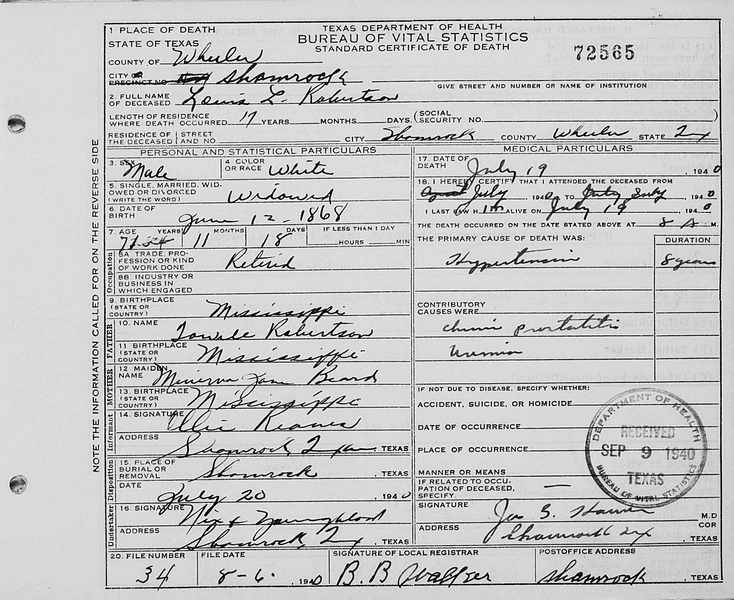 TEXAS DEPARTMENT OF HEALTH
BUREAU OF VITAL STATISTICS
STANDARD CERTIFICATE OF DEATH
72565
NOTE THE INFORMATION CALLED FOR ON THE REVERSE SIDE
1 PLACE OF DEATH
STATE OF TEXAS
COUNTY OF Wheeler
CITY OR PRECINCT NO Shamrock
GIVE STREET AND NUMBER OR NAME OF INSTITUTION
2. FULL NAME OF DECEASED Lewis L. Robertson
LENGTH OF RESIDENCE WHERE DEATH OCCURRED 17 YEARS MONTHS DAYS (SOCIAL SECURITY NO.
RESIDENCE OF THE DECEASED STREET AND NO. CITY Shamrock COUNTY Wheeler STATE Tex
PERSONAL AND STATISTICAL PARTICULARS
3. SEX Male
4. COLOR OR RACE White
5. SINGLE, MARRIED, WIDOWED OR DIVORCED (WRITE THE WORD) Widowed
6. DATE OF BIRTH June 12 - 1868
7. AGE YEARS 11 MONTHS 18 DAYS IF LESS THAN 1 DAY
HOURS MIN
Occupation
8A TRADE, PROFESSION OR KIND OF WORK DONE Retired
8B INDUSTRY OR BUSINESS IN WHICH ENGAGED
9. BIRTHPLACE (STATE OR COUNTRY) Mississippi
FATHER
10. NAME Robertson
11 BIRTHPLACE (STATE OR COUNTRY) Mississippi
MOTHER
12 MAIDEN NAME Minerva Jane Beard
13. BIRTHPLACE (STATE OR COUNTRY) Mississippi
Informant
14. SIGNATURE Ollie Reaves
ADDRESS Shamrock Texas TEXAS
Disposition
15. PLACE OF BURIAL OR REMOVAL Shamrock
DATE July 20 1940
Undertaker
16. SIGNATURE Nix & Youngblood
ADDRESS Shamrock, Tex, TEXAS
MEDICAL PARTICULARS
17. DATE OF DEATH July 19 , 1940
18. I HEREBY CERTIFY THAT I ATTENDED THE DECEASED FROM
July 1940 TO July , 1940
I LAST SAW H im ALIVE ON July 19 , 1940
THE DEATH OCCURRED ON THE DATE STATED ABOVE AT 8 A. M.
THE PRIMARY CAUSE OF DEATH WAS: DURATION
Hypertension 8 years
CONTRIBUTORY CAUSES WERE
Chronic prostatitis
Uremia
IF NOT DUE TO DISEASE, SPECIFY WHETHER:
ACCIDENT, SUICIDE, OR HOMICIDE
DATE OF OCCURRENCE
PLACE OF OCCURRENCE
MANNER OR MEANS
IF RELATED TO OCCUPATION OF DECEASED, SPECIFY. —
SIGNATURE M.D
ADDRESS Shamrock Tex COR , TEXAS
DEPARTMENT OF HEALTH
RECEIVED
SEP 9 1940
TEXAS
BUREAU OF VITAL STATISTICS
20. FILE NUMBER FILE DATE SIGNATURE OF LOCAL REGISTRAR POSTOFFICE ADDRESS
34 8-6. 1940 B. B Walker Shamrock , TEXAS